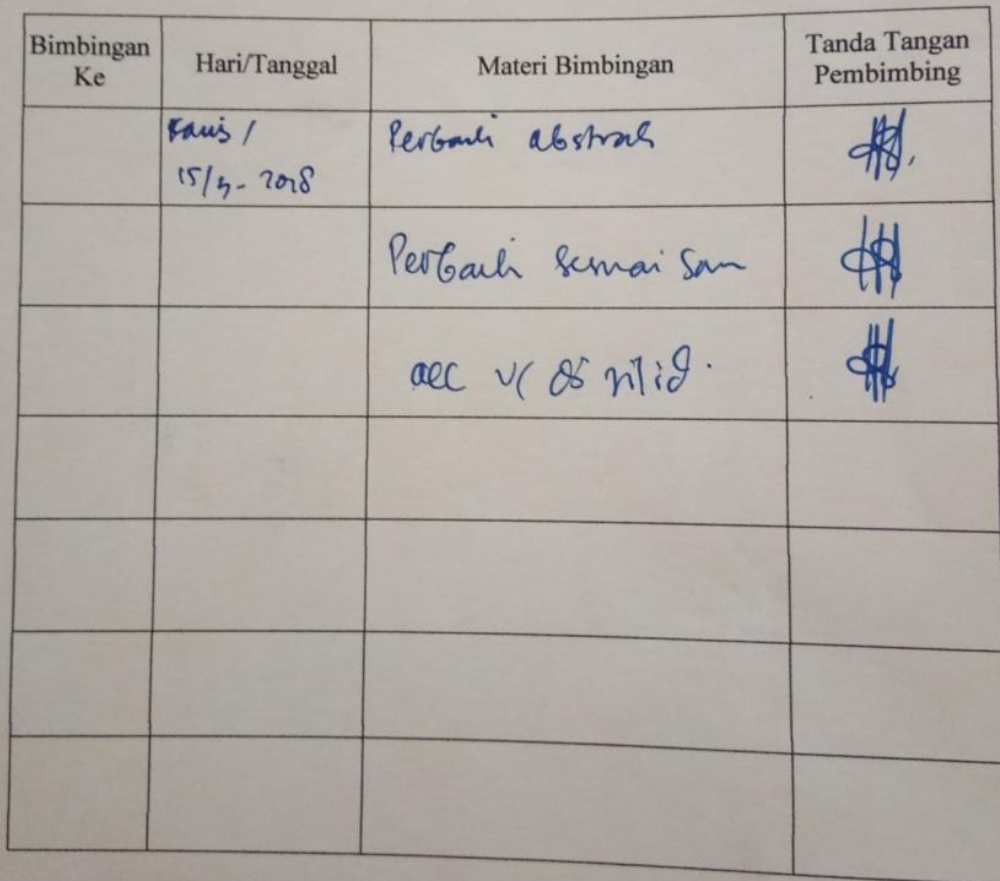 Bimbingan Ke
Hari/Tanggal
Materi Bimbingan
Tanda Tangan Pembimbing
Kamis /
15/3-2018
Perbaiki abstrak
Perbaiki sesuai saran
acc di jilid.